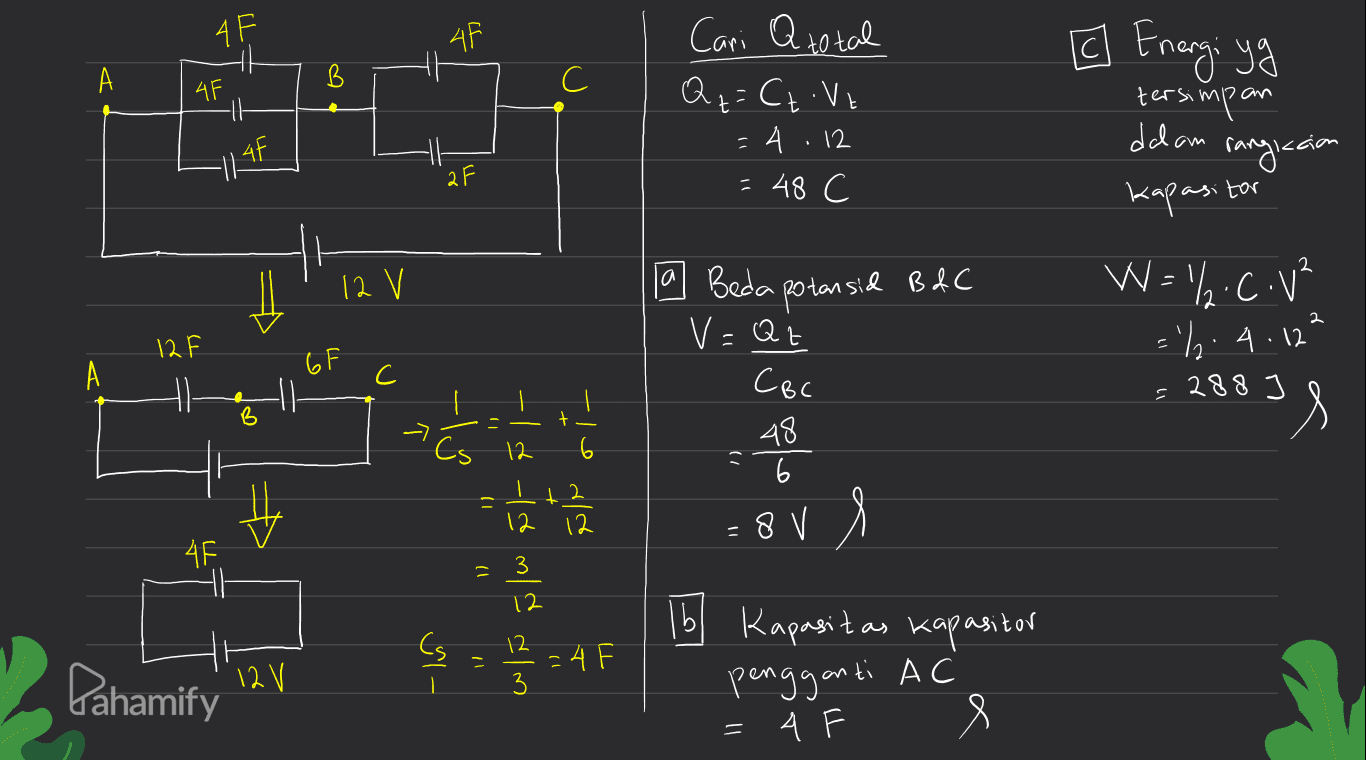 4F
4F
4F
A
B
4F
2F
C
12 V
12F
6F
A
B
C
→ 1/Cs = 1/12 + 1/6
= 1/12 + 2/12
= 3/12
Cs/1 = 12/3 = 4 F
4F
12 V
Pahamify
Cari Q total
Qt = Ct . Vt
= 4 . 12
= 48 C
a Beda potensial B & C
V = Qt/CBC
= 48/6
= 8 V
b Kapasitas kapasitor
pengganti AC
= 4 F
c Energi yg
tersimpan
dalam rangkaian
kapasitor
W = 1/2 . C . V²
= 1/2 . 4 . 12²
= 288 J